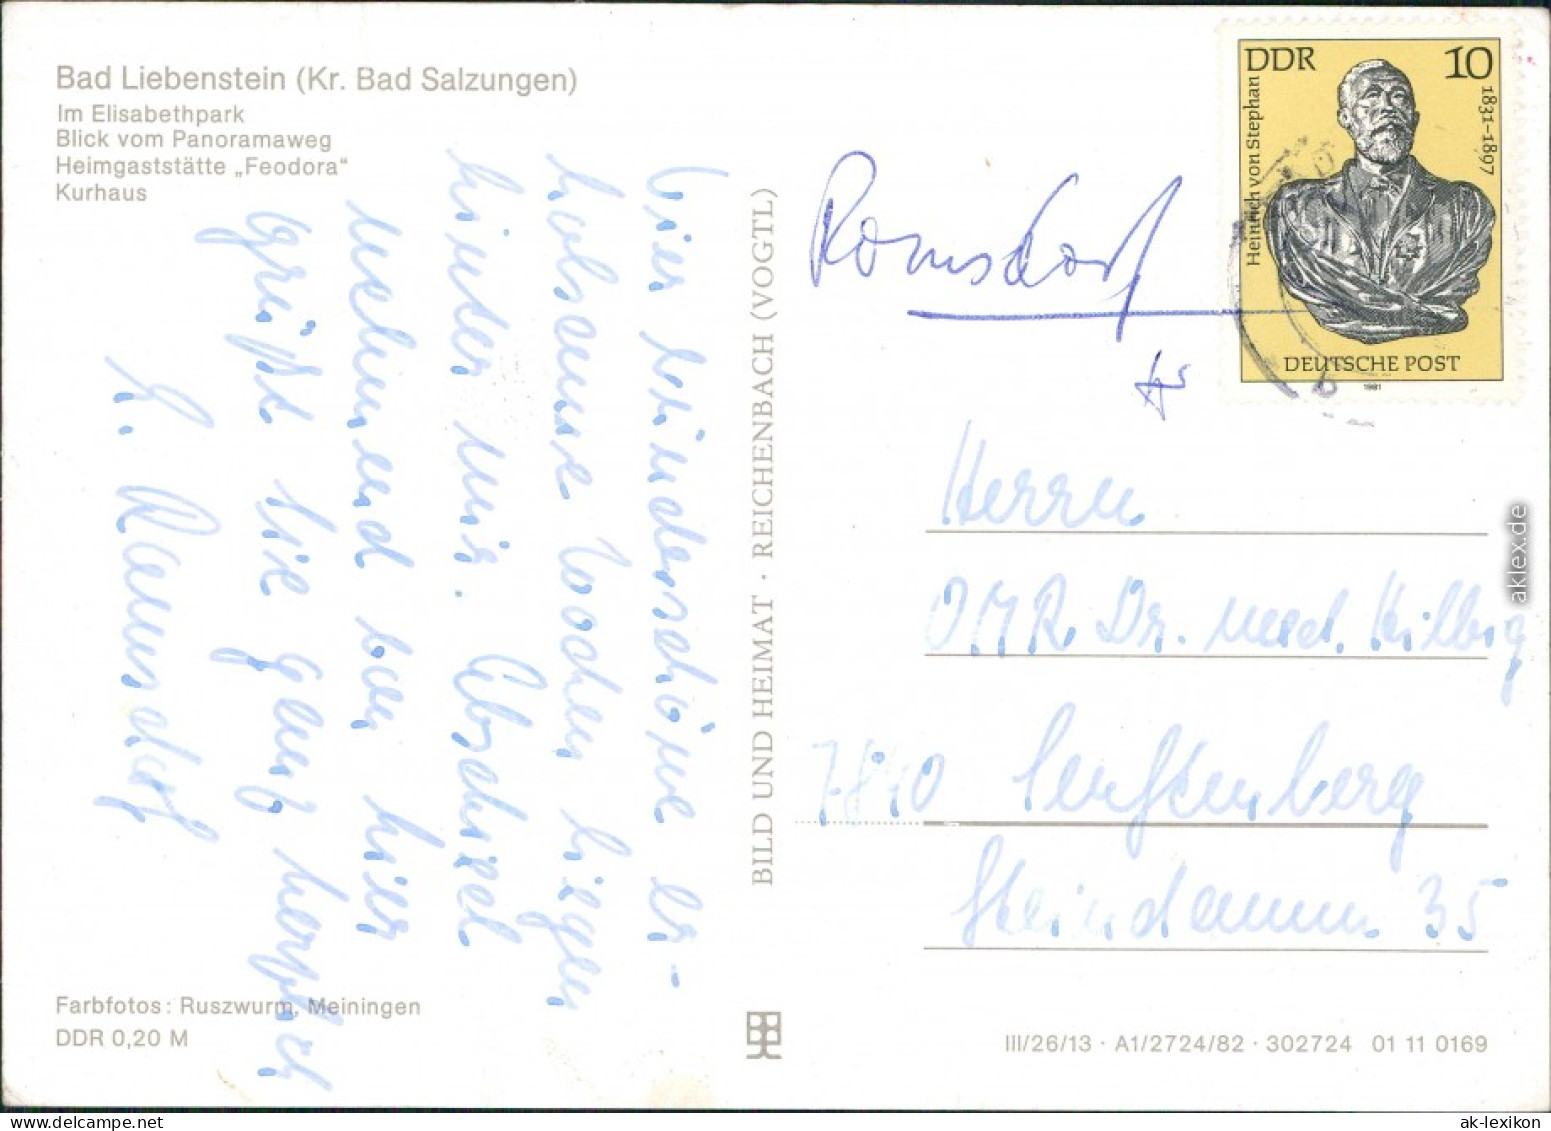 Bad Liebenstein (Kr. Bad Salzungen)
Im Elisabethpark
Blick vom Panoramaweg
Heimgaststätte „Feodora“
Kurhaus
Vier wunderschöne er-
holsame Wochen liegen
hinter mir. Abschied
nehmend von hier
grüßt Sie ganz herzlich
Ramsdorf
Farbfotos: Ruszwurm, Meiningen
DDR 0,20 M
BILD UND HEIMAT · REICHENBACH (VOGTL)
Romsdorf
DDR 10
Heinrich von Stephan
1831-1897
DEUTSCHE POST
1981
Herrn
OMR Dr. med. Hilbig
7840 Senftenberg
Steindamm 35
III/26/13 · A1/2724/82 · 302724 01 11 0169
aklex.de
ak-lexikon